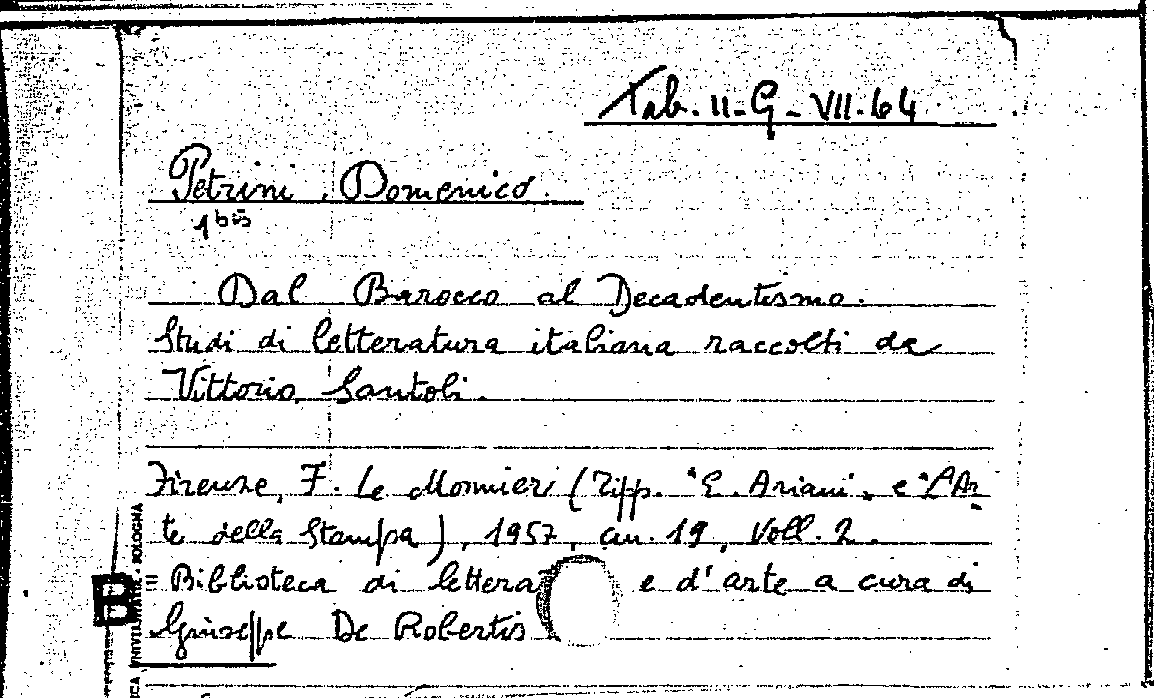 Tab. II-G-VII.64
Petrini, Domenico.
1 bis
Dal Barocco al Decadentismo.
Studi di letteratura italiana raccolti da
Vittorio Santoli.
Firenze, F. Le Monnier (Tipp. "E. Ariani" e "L'Ar-
te della Stampa), 1957, cm. 19, Voll. 2.
= Biblioteca di lettera e d'arte a cura di
Giuseppe De Robertis
BOLOGNA